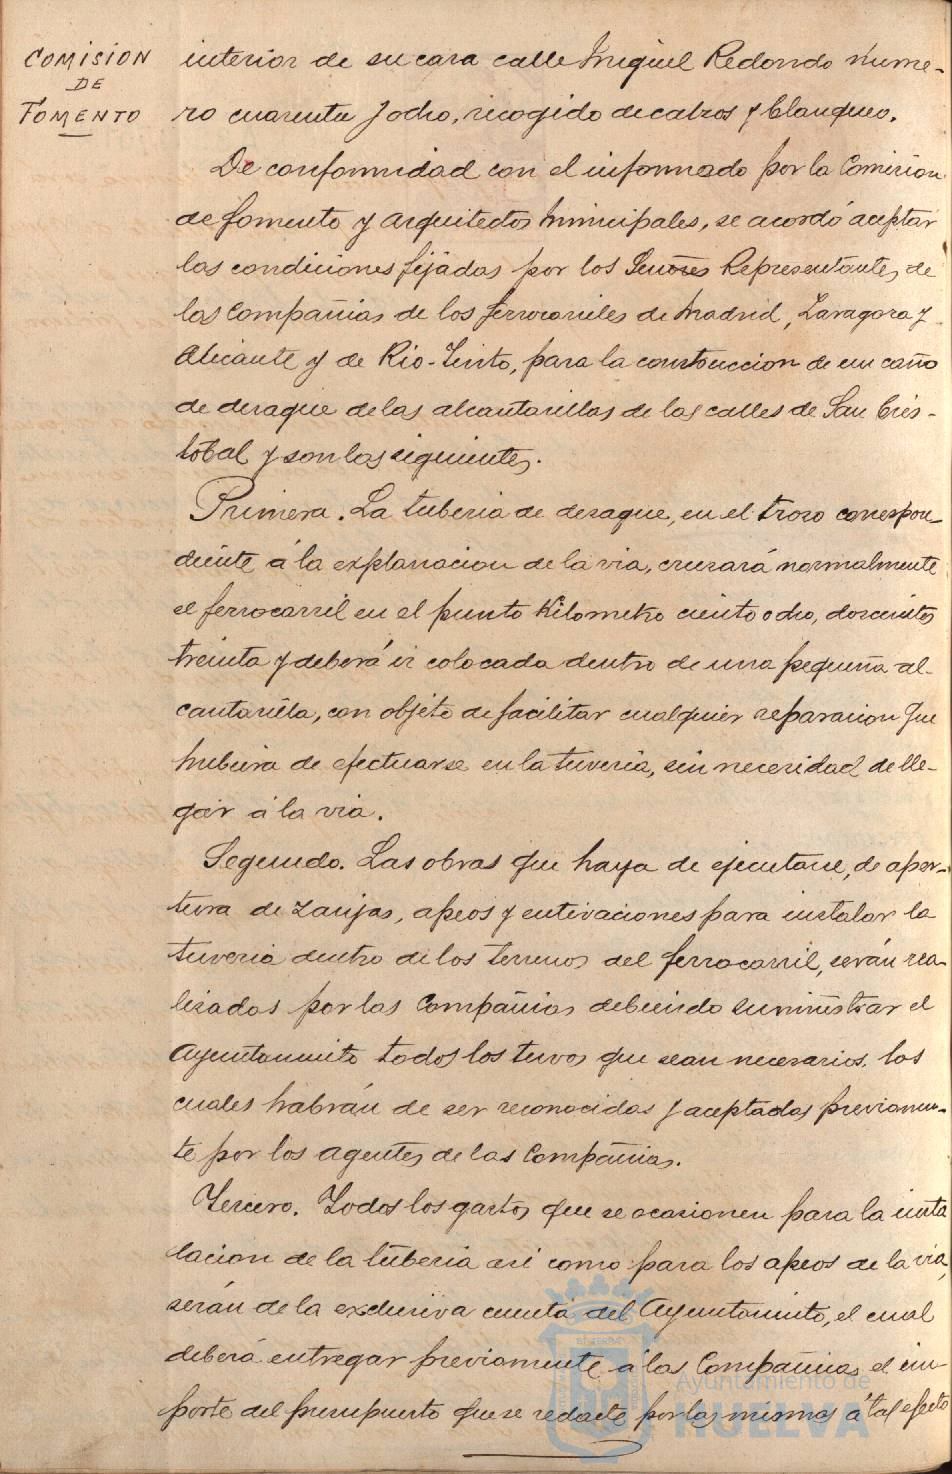 COMISION
DE
FOMENTO
interior de su cara calle Miguel Redondo núme-
ro cuarenta y ocho, recogido de calzos y blanqueo.
De conformidad con el informado por la Comision
de fomento y arquitectos Municipales, se acordó aceptar
las condiciones fijadas por los Señores Representantes de
las Compañias de los ferrocarriles de Madrid, Zaragoza y
Alicante y de Rio-Tinto, para la construccion de un caño
de desague de las alcantarillas de las calles de San Cris-
tobal y son las siguientes.
Primera. La tuberia de desague, en el trozo correspon-
diente á la explanacion de la via, cruzará normalmente
el ferrocarril en el punto Kilometro ciento ocho, doscientos
treinta y deberá ir colocada dentro de una pequeña al-
cantarilla, con objeto de facilitar cualquier reparacion que
hubiera de efectuarse en la tuveria, sin necesidad de lle-
gar á la via.
Segundo. Las obras que haya de ejecutarse, de aper-
tura de zanjas, apeos y entivaciones para instalar la
tuveria dentro de los terrenos del ferrocarril, serán rea-
lizados por las Compañias debiendo suministrar el
Ayuntamiento todos los tuvos que sean necesarios, los
cuales habrán de ser reconocidos y aceptados previamen-
te por los agentes de las Compañias.
Tercero. Todos los gastos que se ocasionen para la insta
lacion de la tuberia asi como para los apeos de la via,
serán de la exclusiva cuenta del Ayuntamiento, el cual
deberá entregar previamente á las Compañias el im-
porte del presupuesto que se redacte por las mismas á tal efecto
Ayuntamiento de
HUELVA